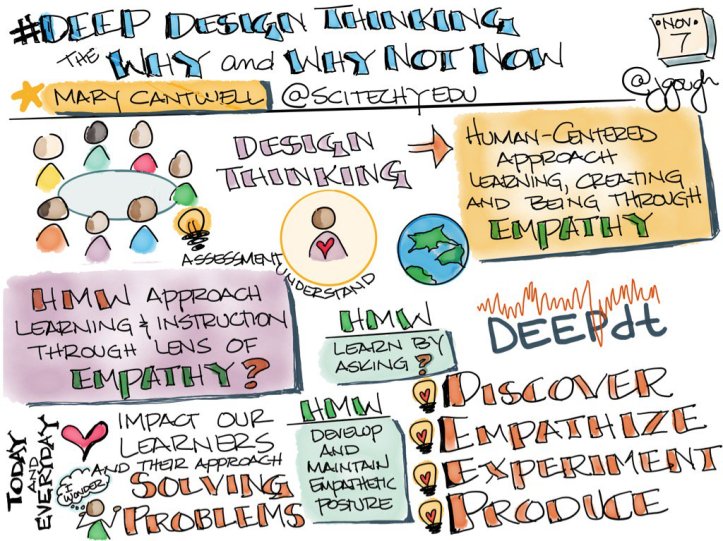 #DEEP DESIGN THINKING
THE WHY and WHY NOT NOW
•NOV•
7
MARY CANTWELL @SCITECHYEDU
@jgough
DESIGN
THINKING
HUMAN-CENTERED
APPROACH
LEARNING, CREATING
AND BEING THROUGH
EMPATHY
ASSESSMENT
UNDERSTAND
HMW APPROACH
LEARNING & INSTRUCTION
THROUGH LENS OF
EMPATHY?
HMW
LEARN BY
ASKING?
DEEPdt
TODAY
AND
EVERYDAY
IMPACT OUR
LEARNERS
AND THEIR APPROACH
SOLVING
PROBLEMS
I
WONDER
HMW
DEVELOP
AND
MAINTAIN
EMPATHETIC
POSTURE
DISCOVER
EMPATHIZE
EXPERIMENT
PRODUCE